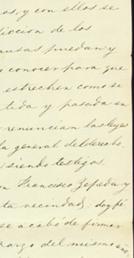 os, y con ellos se
de los
puedan y
conocer para que
estrechen como se
pasada en
renuncian las leyes
la general del derecho
siendo testigos
Francisco Zepeda y
vecindad; doy fé
se acabó de firmar
del mismo